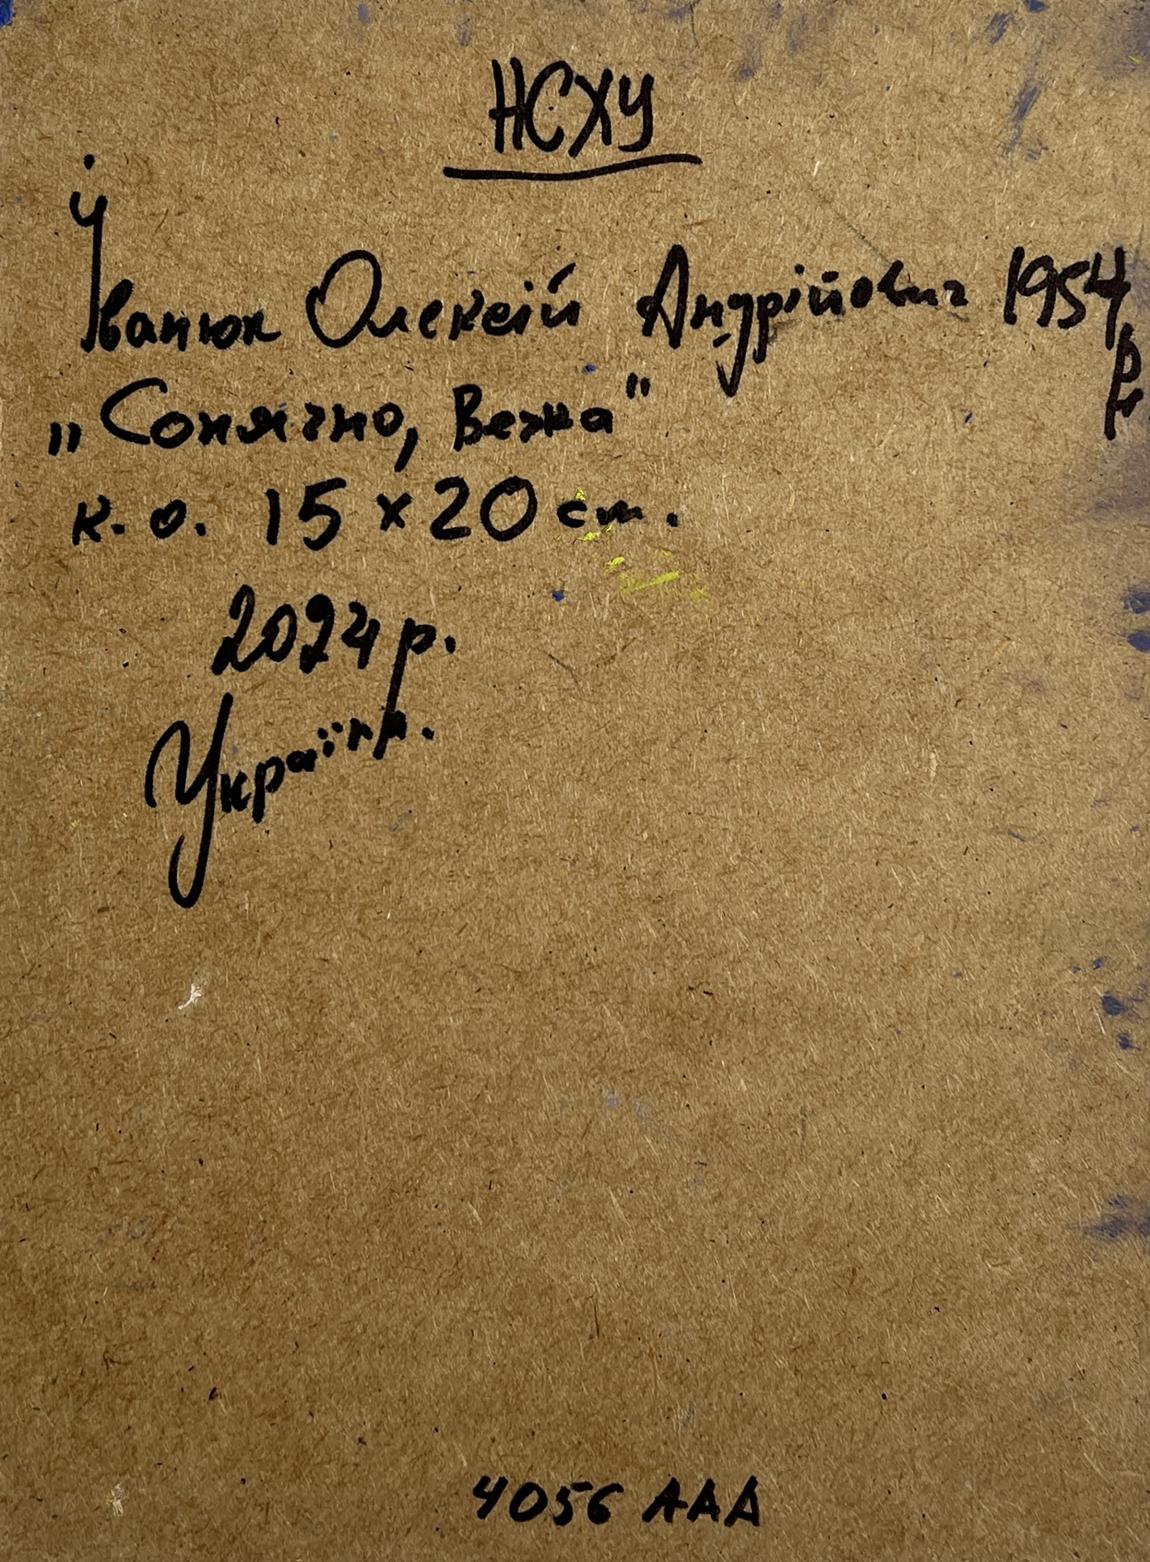 НСХУ
Іванюк Олексій Андрійович 1954 р.н.
„Сонячно, Вежа"
к. о. 15 x 20 см.
2024 р.
Україна.
4056 ААА